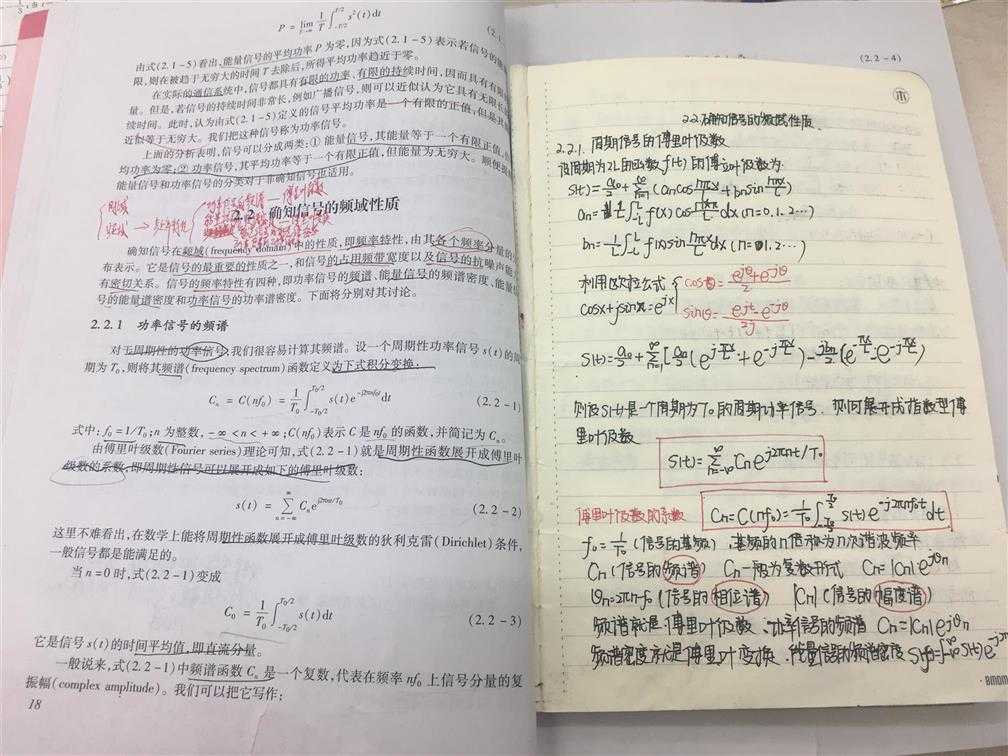 P = lim T→∞ 1/T ∫_{-T/2}^{T/2} s²(t)dt (2.1
由式(2.1-5)看出,能量信号的平均功率P为零,因为式(2.1-5)表示若信号的能
限,则在被趋于无穷大的时间T去除后,所得平均功率趋近于零。
在实际的通信系统中,信号都具有有限的功率、有限的持续时间,因而具有有限
量。但是,若信号的持续时间非常长,例如广播信号,则可以近似认为它具有无限长
续时间。此时,认为由式(2.1-5)定义的信号平均功率是一个有限的正值,但是其
近似等于无穷大。我们把这种信号称为功率信号。
上面的分析表明,信号可以分成两类:①能量信号,其能量等于一个有限正值,
均功率为零;②功率信号,其平均功率等于一个有限正值,但能量为无穷大。顺便
能量信号和功率信号的分类对于非确知信号也适用。
2.2 确知信号的频域性质
确知信号在频域(frequency domain)中的性质,即频率特性,由其各个频率分量的
布表示。它是信号的最重要的性质之一,和信号的占用频带宽度以及信号的抗噪声能
有密切关系。信号的频率特性有四种,即功率信号的频谱、能量信号的频谱密度、能量
号的能量谱密度和功率信号的功率谱密度。下面将分别对其讨论。
2.2.1 功率信号的频谱
对于周期性的功率信号,我们很容易计算其频谱。设一个周期性功率信号s(t)的周
期为T₀,则将其频谱(frequency spectrum)函数定义为下式积分变换.
Cₙ = C(nf₀) = 1/T₀ ∫_{-T₀/2}^{T₀/2} s(t)e^{-j2πnf₀t}dt (2.2-1)
式中:f₀=1/T₀;n为整数,-∞<n<+∞;C(nf₀)表示C是nf₀的函数,并简记为Cₙ。
由傅里叶级数(Fourier series)理论可知,式(2.2-1)就是周期性函数展开成傅里叶
级数的系数,即周期性信号可以展开成如下的傅里叶级数:
s(t) = ∑_{n=-∞}^{∞} Cₙe^{j2πnt/T₀} (2.2-2)
这里不难看出,在数学上能将周期性函数展开成傅里叶级数的狄利克雷(Dirichlet)条件,
一般信号都是能满足的。
当n=0时,式(2.2-1)变成
C₀ = 1/T₀ ∫_{-T₀/2}^{T₀/2} s(t)dt (2.2-3)
它是信号s(t)的时间平均值,即直流分量。
一般说来,式(2.2-1)中频谱函数Cₙ是一个复数,代表在频率nf₀上信号分量的复
振幅(complex amplitude)。我们可以把它写作:
18
(2.2-4)
2.2 确知信号的频域性质.
2.2.1. 周期信号的傅里叶级数
设周期为2L的函数f(t)的傅立叶级数为
S(t)=a₀/2+∑_{n=1}^{∞}(aₙcos nπx/L+bₙsin nπx/L)
aₙ=1/L∫_{-L}^{L}f(x)cos nπx/L dx (n=0,1,2…)
bₙ=1/L∫_{-L}^{L}f(x)sin nπx/L dx (n=1,2…)
利用欧拉公式
cosx+jsinx=e^{jx}
cosθ=(e^{jθ}+e^{-jθ})/2
则设S(t)是一个周期为T₀的周期功率信号.则可展开成指数型傅
里叶级数
S(t)=∑_{n=-∞}^{∞}Cₙe^{j2πnt/T₀}
傅里叶级数的系数
Cₙ=C(nf₀)=1/T₀∫_{-T₀/2}^{T₀/2}S(t)e^{-j2πnf₀t}dt
f₀=1/T₀(信号的基频).基频的n倍称为n次谐波频率
Cₙ(信号的频谱) Cₙ一般为复数形式 Cₙ=|Cₙ|e^{jθₙ}
θₙ=2πn·f₀(信号的相位谱) |Cₙ|(信号的幅度谱)
频谱就是傅里叶级数.功率信号的频谱 Cₙ=|Cₙ|e^{jθₙ}
频谱密度就是傅里叶变换.能量信号的频谱密度